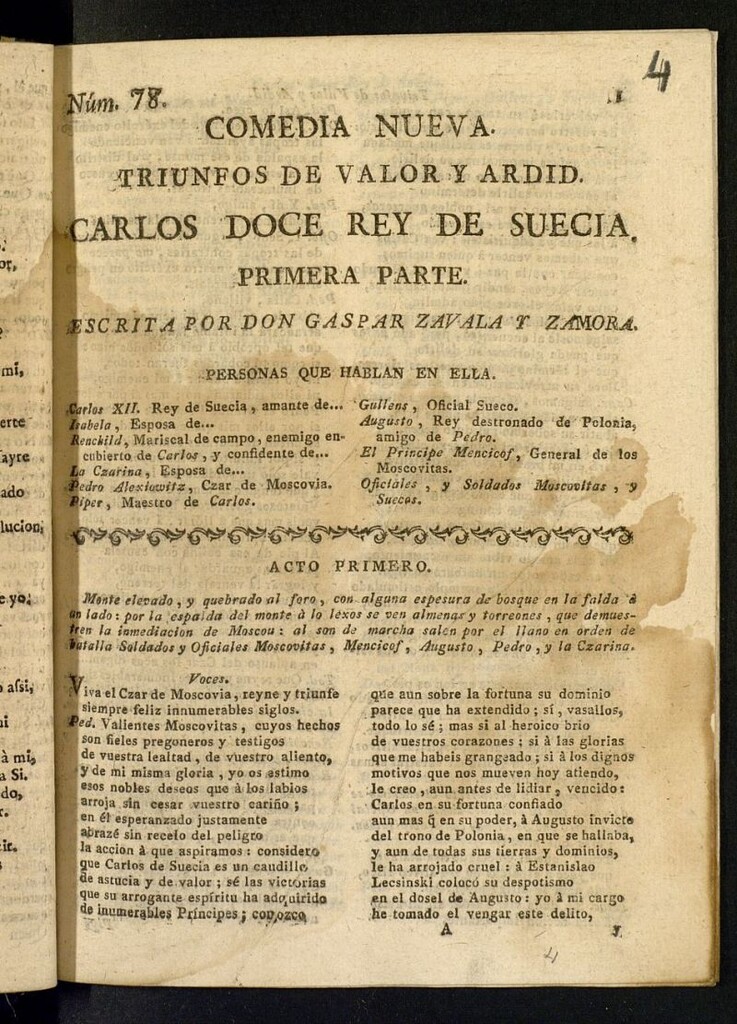 or,
mi,
erte
ayre
ado
lucion;
e yo;
assi,
ni
à mi,
a Si.
do,
r.
cir.
Núm. 78.
1
4
COMEDIA NUEVA.
TRIUNFOS DE VALOR Y ARDID.
CARLOS DOCE REY DE SUECIA.
PRIMERA PARTE.
ESCRITA POR DON GASPAR ZAVALA Y ZAMORA.
PERSONAS QUE HABLAN EN ELLA.
Carlos XII. Rey de Suecia, amante de...
Isabela, Esposa de...
Renchild, Mariscal de campo, enemigo en-
cubierto de Carlos, y confidente de...
La Czarina, Esposa de...
Pedro Alexiowitz, Czar de Moscovia.
Piper, Maestro de Carlos.
Gullens, Oficial Sueco.
Augusto, Rey destronado de Polonia,
amigo de Pedro.
El Principe Mencicof, General de los
Moscovitas.
Oficiales, y Soldados Moscovitas, y
Suecos.
ACTO PRIMERO.
Monte elevado, y quebrado al foro, con alguna espesura de bosque en la falda à
un lado: por la espalda del monte à lo lexos se ven almenas y torreones, que demues-
tren la inmediacion de Moscou: al son de marcha salen por el llano en orden de
batalla Soldados y Oficiales Moscovitas, Mencicof, Augusto, Pedro, y la Czarina.
Voces.
Viva el Czar de Moscovia, reyne y triunfe
siempre feliz innumerables siglos.
Ped. Valientes Moscovitas, cuyos hechos
son fieles pregoneros y testigos
de vuestra lealtad, de vuestro aliento,
y de mi misma gloria, yo os estimo
esos nobles deseos que à los labios
arroja sin cesar vuestro cariño;
en él esperanzado justamente
abrazé sin recelo del peligro
la accion à que aspiramos: considero
que Carlos de Suecia es un caudillo
de astucia y de valor; sé las victorias
que su arrogante espíritu ha adquirido
de inumerables Príncipes; conozco
que aun sobre la fortuna su dominio
parece que ha extendido; sí, vasallos,
todo lo sé; mas si al heroico brio
de vuestros corazones; si à las glorias
que me habeis grangeado; si à los dignos
motivos que nos mueven hoy atiendo,
le creo, aun antes de lidiar, vencido:
Carlos en su fortuna confiado
aun mas q̃ en su poder, à Augusto invicto
del trono de Polonia, en que se hallaba,
y aun de todas sus tierras y dominios,
le ha arrojado cruel: à Estanislao
Lecsinski colocó su despotismo
en el dosel de Augusto: yo à mi cargo
he tomado el vengar este delito,
A
y
4